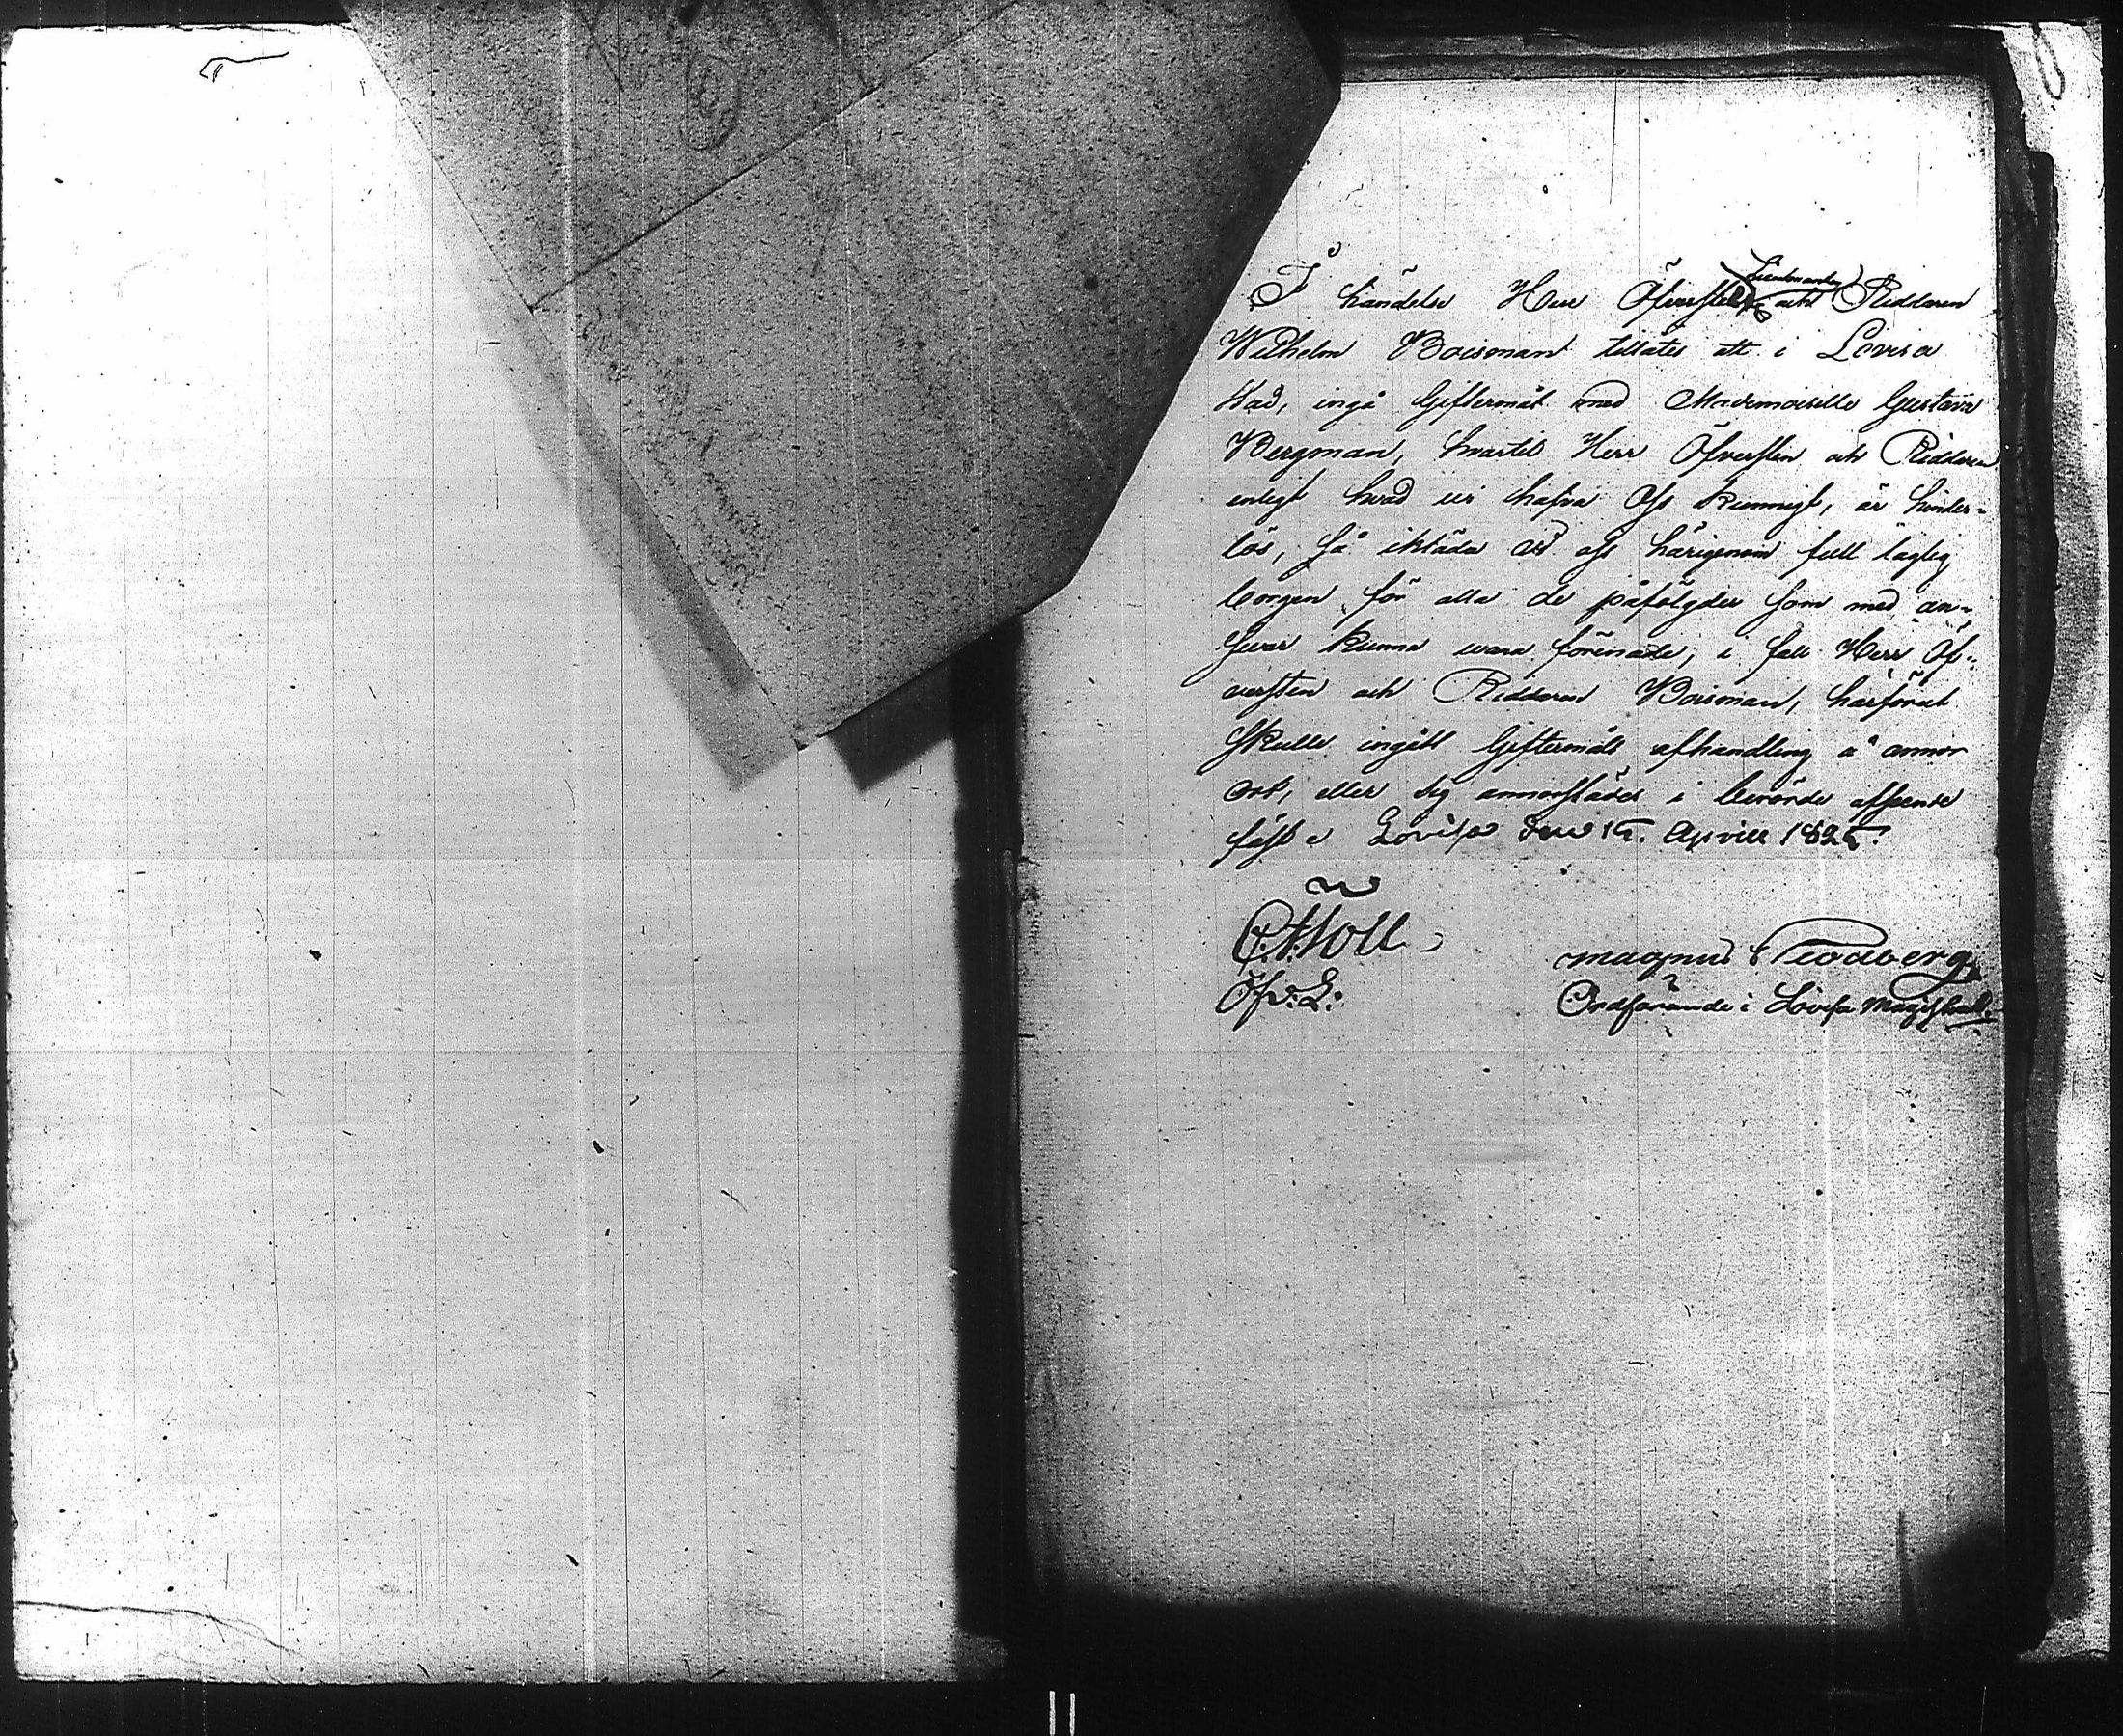 I händelse Herr Öfversten och Riddaren
Lieutenanten
Wilhelm Boisman tillåtes att i Lovisa
stad, ingå Giftermål med Mademoiselle Gustava
Bergman, hvartil Herr Öfversten och Riddaren
enligt hvad vi hafva Oss kunnigt, är hinder-
lös, så ikläda vi oss härigenom full laglig
borgen för alla de påfölgder som med an-
svar kunna vara förenade, i fall Herr Öf-
versten och Riddaren Boisman, härförut
skulle ingått Giftermåls afhandling å annor
ort, eller sig annorstädes i berörde afseende
fäst. Lovisa den 15. April 1825.
Öfv: L:
Magnus
Ordförande i Lovisa Magistrat.